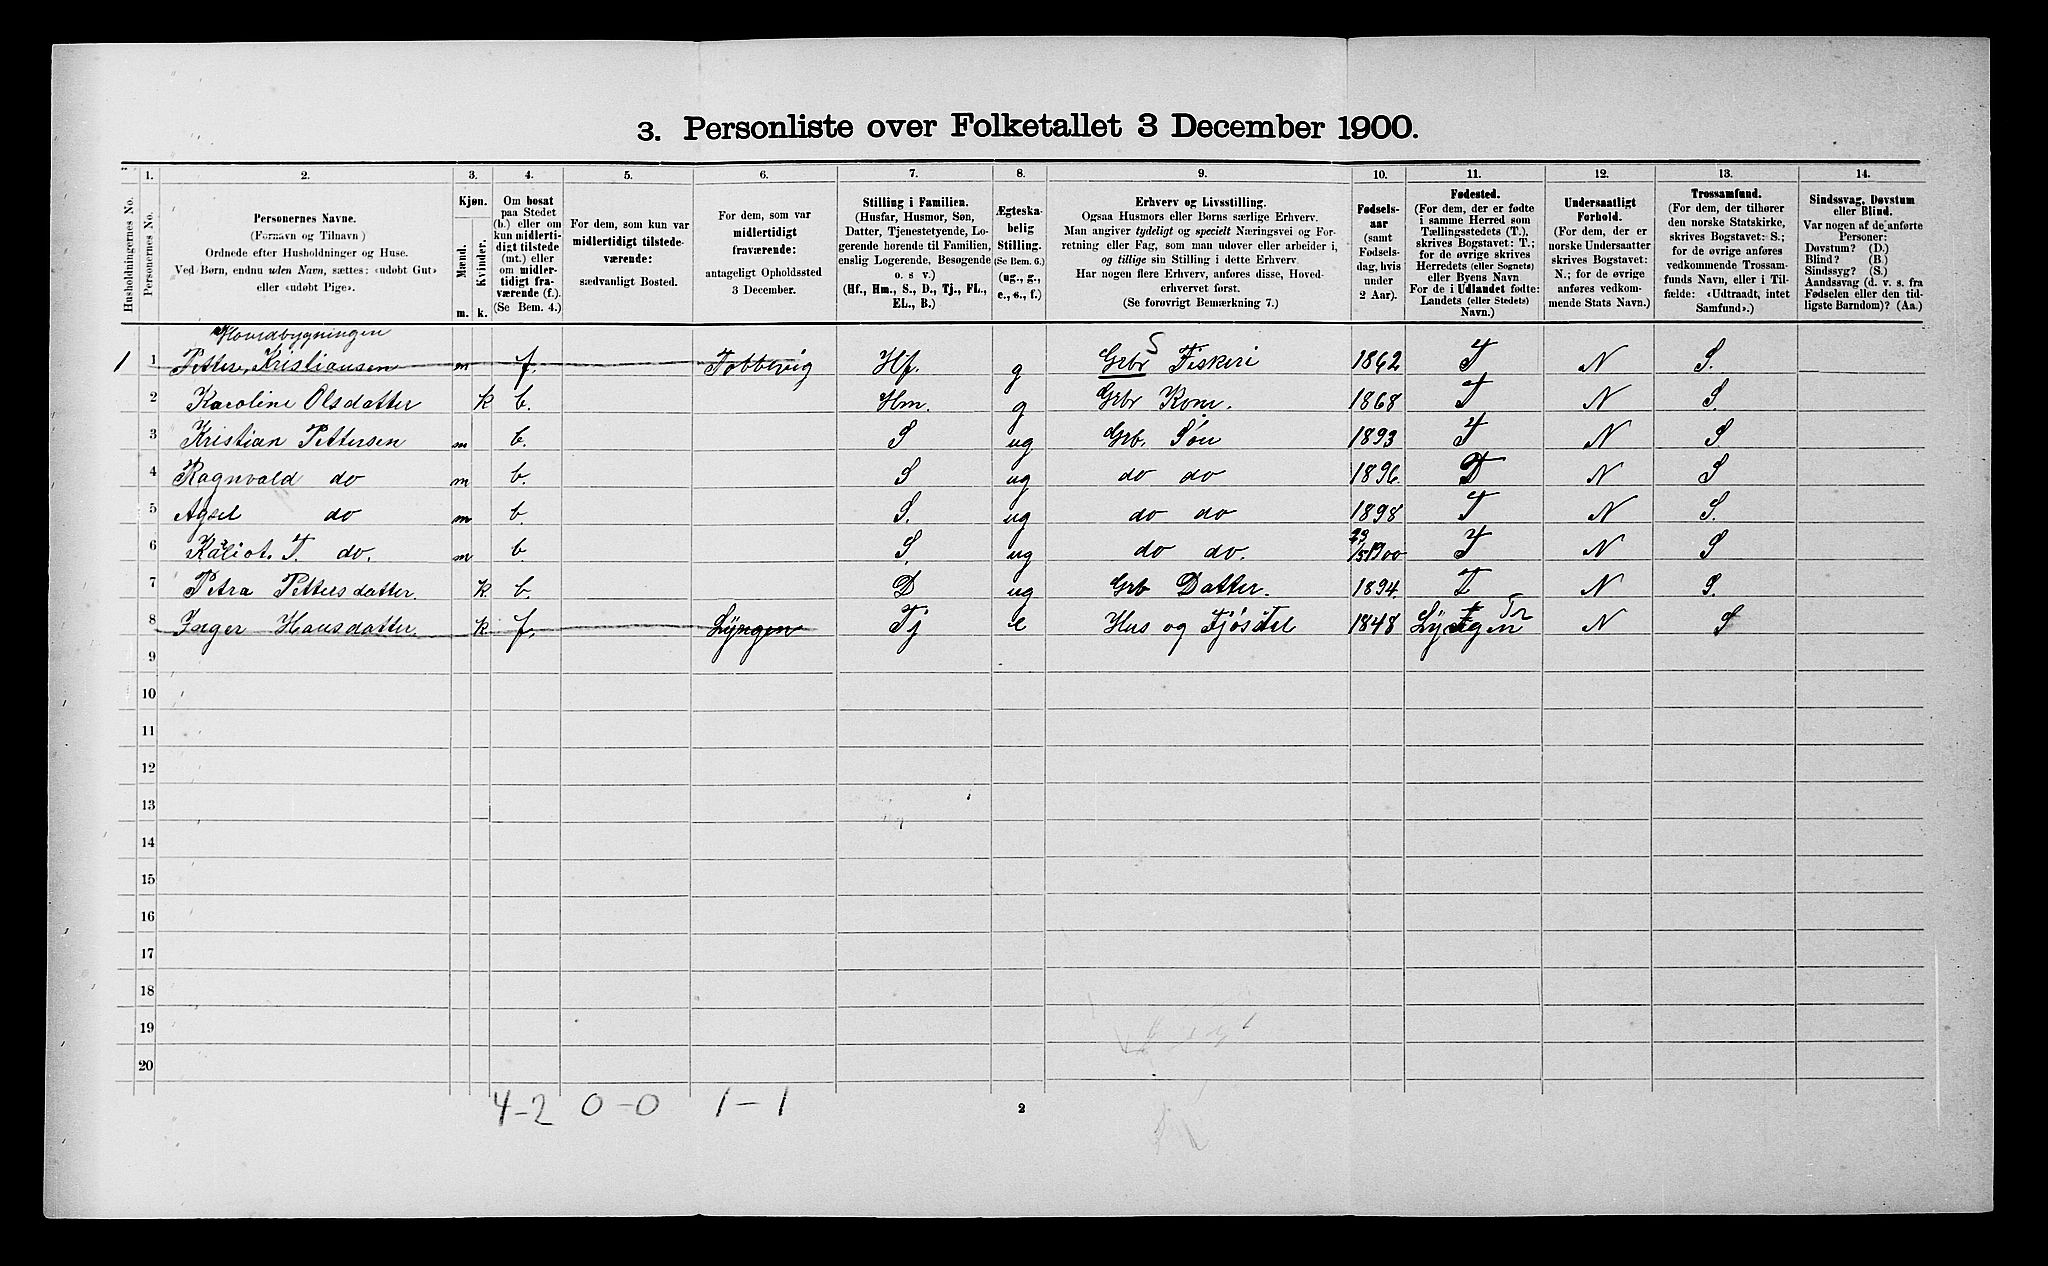 3. Personliste over Folketallet 3 December 1900.
Husholdningernes No.
1.
Personernes No.
2.
Personernes Navne.
(Fornavn og Tilnavn)
Ordnede efter Husholdninger og Huse.
Ved Børn, endnu uden Navn, sættes: «udøbt Gut»
eller «udøbt Pige».
3.
Kjøn.
Mænd.
Kvinder.
m. k.
4.
Om bosat
paa Stedet
(b.) eller om
kun midlerti-
digt tilstede
(mt.) eller
om midler-
tidigt fra-
værende (f.).
(Se Bem. 4.)
5.
For dem, som kun var
midlertidigt tilstede-
værende:
sædvanligt Bosted.
6.
For dem, som var
midlertidigt
fraværende:
antageligt Opholdssted
3 December.
7.
Stilling i Familien.
(Husfar, Husmor, Søn,
Datter, Tjenestetyende, Lo-
gerende hørende til Familien,
enslig Logerende, Besøgende
o. s v.)
(Hf., Hm., S., D., Tj., FL.,
EL., B.)
8.
Ægteska-
belig
Stilling.
(Se Bem. 6.)
(ug., g.,
e., s., f.)
9.
Erhverv og Livsstilling.
Ogsaa Husmors eller Børns særlige Erhverv.
Man angiver tydeligt og specielt Næringsvei og For-
retning eller Fag, som man udøver eller arbeider i,
og tillige sin Stilling i dette Erhverv.
Har nogen flere Erhverv, anføres disse, Hoved-
erhvervet først.
(Se forøvrigt Bemærkning 7.)
10.
Fødsels-
aar
(samt
Fødsels-
dag, hvis
under
2 Aar).
11.
Fødested.
(For dem, der er fødte
i samme Herred som
Tællingsstedets (T.),
skrives Bogstavet: T.;
for de øvrige skrives
Herredets (eller Sognets)
eller Byens Navn
For de i Udlandet fødte:
Landets (eller Stedets)
Navn.)
12.
Undersaatligt
Forhold.
(For dem, der er
norske Undersaatter
skrives Bogstavet:
N.; for de øvrige
anføres vedkom-
mende Stats Navn.)
13.
Trossamfund.
(For dem, der tilhører
den norske Statskirke,
skrives Bogstavet: S.;
for de øvrige anføres
vedkommende Trossam-
funds Navn, eller i Til-
fælde: «Udtraadt, intet
Samfund».)
14.
Sindssvag, Døvstum
eller Blind.
Var nogen af de anførte
Personer:
Døvstum? (D.)
Blind? (B.)
Sindssyg? (S.)
Aandssvag (d. v. s. fra
Fødselen eller den tid-
ligste Barndom)? (Aa.)
Hovedbygningen
1 1 Petter Kristiansen m f. Tobbevig Hf. g Grbr S Fiskeri 1862 T N S.
2 Karoline Olsdatter k b. Hm. g Grbr Kone. 1868 T N S.
3 Kristian Pettersen m b. S ug Grb. Søn 1893 T N S
4 Ragnvald do m b. S ug do do 1896. T N S
5 Agsel do m b. S. ug do do 1898 T N S.
6 Kaliot. T. do. m b. S. ug do do. 23/5 1900 T N S
7 Petra Pettersdatter. k b. D ug Grb Datter. 1894. T N S.
8 Inger Hansdatter. k f. Lyngen Tj e Hus og Fjøsstel 1848 Lyngen Tr N S
9
10
11
12
13
14
15
16
17
18
19
20
4-2 0-0 1-1
2